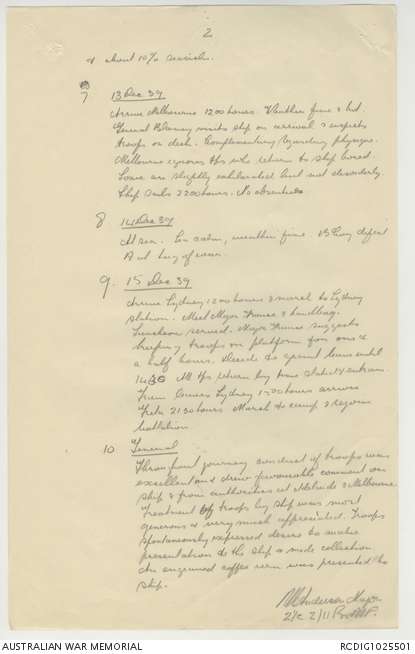 2
& about 10% seasick.
7 13 Dec 39
Arrive Melbourne 1200 hours. Weather fine & hot.
General Blamey visits ship on arrival & inspects
troops on deck. Complimentary regarding physique.
Melbourne ignores tps who return to ship bored.
Some are slightly exhilarated but not disorderly.
Ship sails 2200 hours. No absentees
8 14 Dec 39
At sea. Sea calm, weather fine. defeat
A at tug of war.
9. 15 Dec 39
Arrive Sydney 1200 hours & march to Sydney
station. Meet Major & handbag.
Luncheon served. Major suggests
keeping troops on platform for one &
a half hours. Decide to grant leave until
1430 All tps return by time stated & entrain.
Train leaves Sydney 1500 hours arrives
2130 hours. March to camp & rejoin
battalion
10 General
Throughout journey conduct of troops was
excellent and drew favourable comment on
ship & from authorities at Adelaide & Melbourne.
Treatment of troops by ship was most
generous & very much appreciated. Troops
spontaneously expressed desire to make
presentation to the ship & made collection
An engraved coffee urn was presented to
ship.
Anderson Major
2/11 Bn AIF.
AUSTRALIAN WAR MEMORIAL
RCDIG1025501